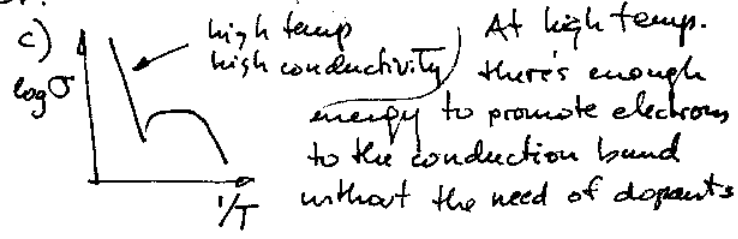 c)
log σ
1/T
high temp
high conductivity
At high temp.
there's enough
energy to promote electrons
to the conduction band
without the need of dopants